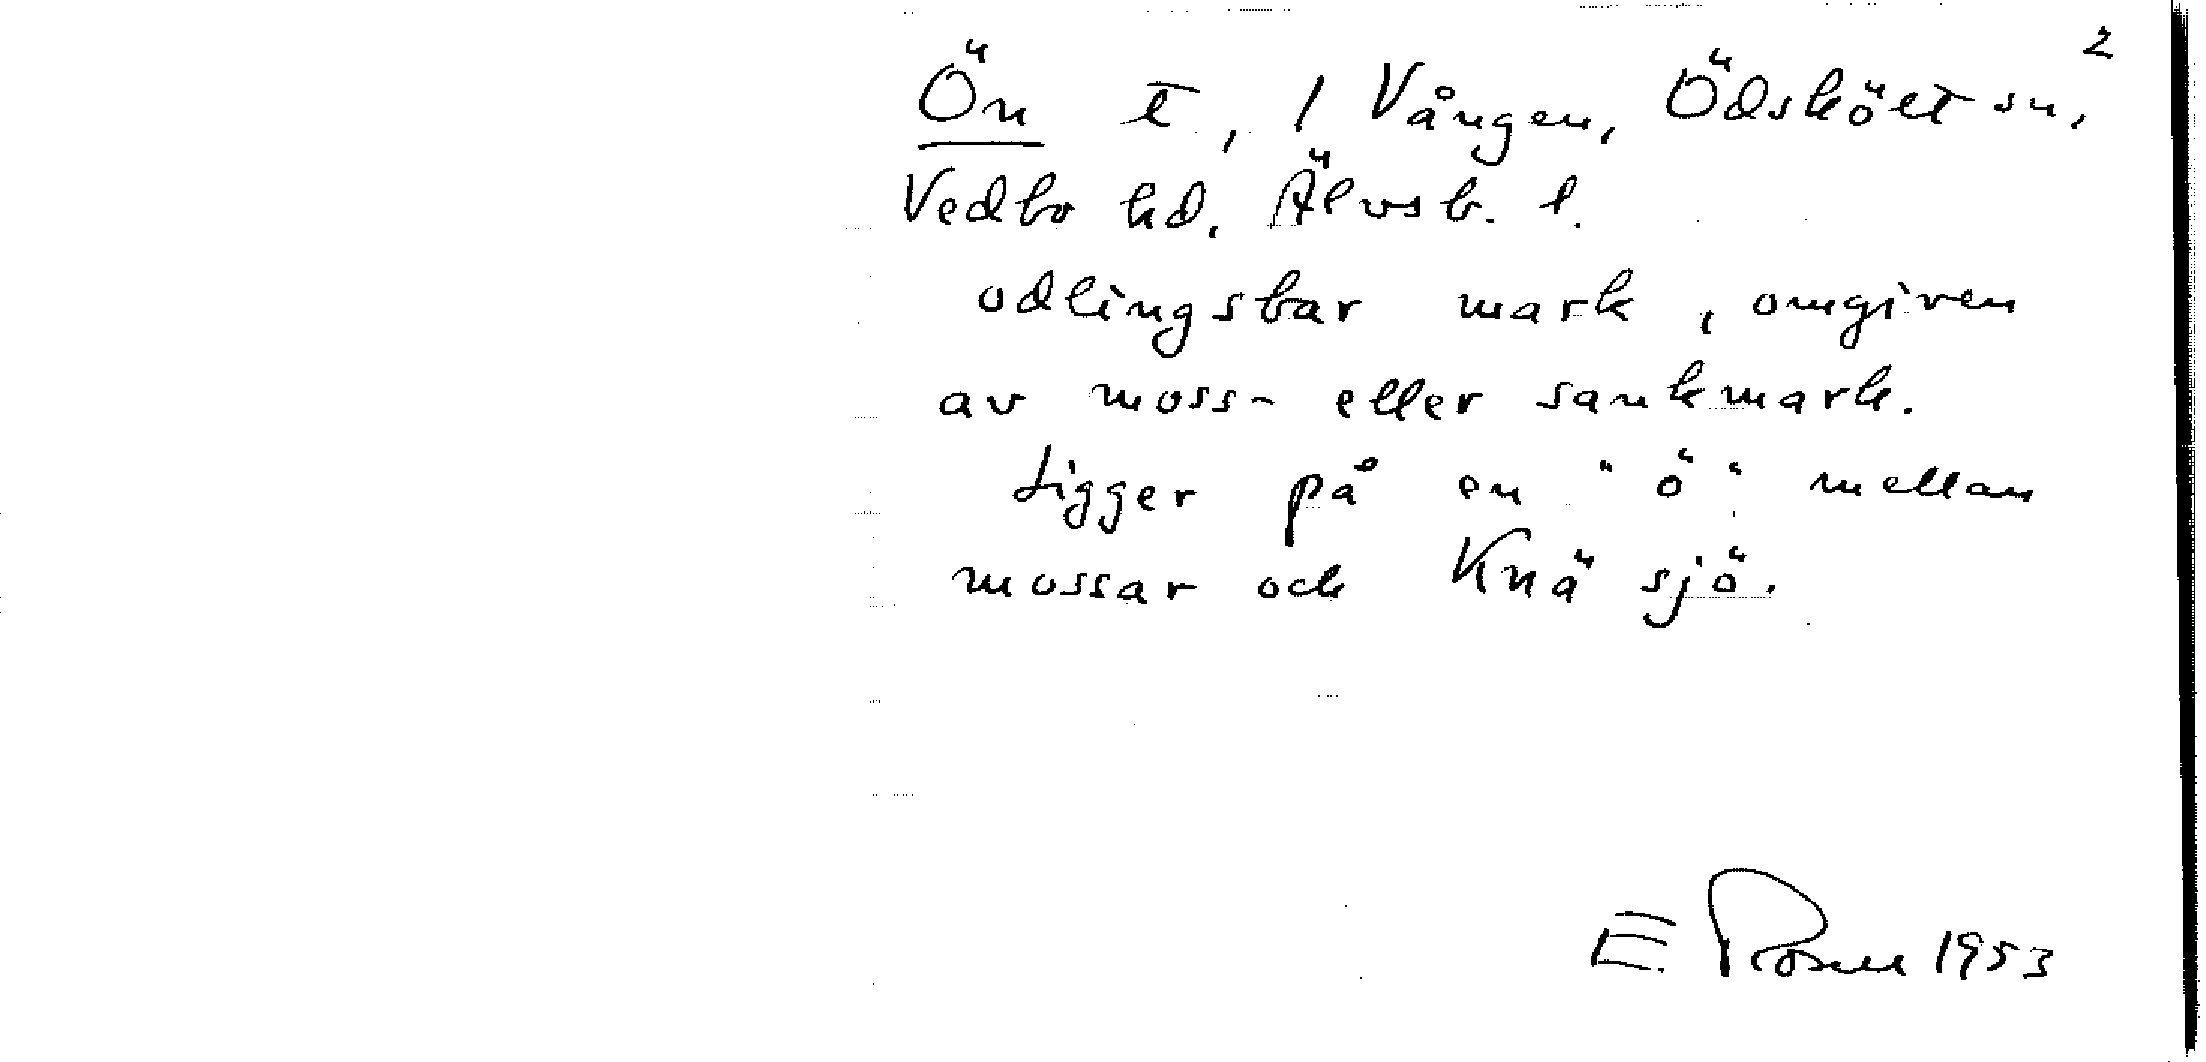 2
Ön t, 1 Vången, Ödskölt sn,
Vedbo hd, Älvsb. l.
odlingsbar mark, omgiven
av moss- eller sankmark.
Ligger på en "ö" mellan
mossar och Knä sjö.
E. 1953